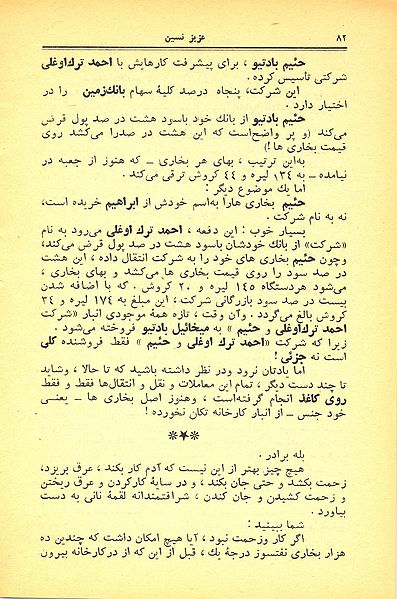 ۸۲
عزیز نسین
حئیم بادتیو ، برای پیشرفت کارهایش با احمد ترک‌اوغلی
شرکتی تأسیس کرده .
این شرکت، پنجاه درصد کلیهٔ سهام بانک‌زمین را در
اختیار دارد .
حئیم بادتیو از بانك خود باسود هشت در صد پول قرض
می‌کند (و پر واضح‌است که این هشت در صدرا می‌کشد روی
قیمت بخاری ها !)
به‌این ترتیب ، بهای هر بخاری ــ که هنوز از جعبه در
نیامده ــ به ۱۳۴ لیره و ۴۴ کروش ترقی می‌کند .
اما یك موضوع دیگر :
حئیم بخاری هارا به‌اسم خودش از ابراهیم خریده است،
نه به نام شرکت .
بسیار خوب : این دفعه ، احمد ترك اوغلی می‌رود به نام
«شرکت» از بانك خودشان باسود هشت در صد پول قرض می‌کند،
وچون حئیم بخاری های خود را به شرکت انتقال داده ، این هشت
در صد سود را روی قیمت بخاری ها می‌کشد و بهای بخاری ،
می‌شود هردستگاه ۱۴۵ لیره و ۲۰ کروش . که با اضافه شدن
بیست در صد سود بازرگانی شرکت ، این مبلغ به ۱۷۴ لیره و ۳۴
کروش بالغ می‌گردد . وآن وقت ، تازه همهٔ موجودی انبار «شرکت
احمد ترك‌اوغلی و حئیم » به میخائیل بادتیو فروخته می‌شود .
زیرا که شرکت «احمد ترك اوغلی و حئیم » فقط فروشنده کلی
است نه جزئی !
اما یادتان نرود ودر نظر داشته باشید که تا حالا ، وشاید
تا چند دست دیگر ، تمام این معاملات و نقل و انتقال‌ها فقط و فقط
روی کاغذ انجام گرفته‌است ، وهنوز اصل بخاری ها ــ یعنی
خود جنس ــ از انبار کارخانه تکان نخورده !
***
بله برادر .
هیچ چیز بهتر از این نیست که آدم کار بکند ، عرق بریزد،
زحمت بکشد و حتی جان بکند ، و در سایهٔ کارکردن و عرق ریختن
و زحمت کشیدن و جان کندن ، شرافتمندانه لقمهٔ نانی به دست
بیاورد .
شما ببینید :
اگر کار وزحمت نبود ، آیا هیچ امکان داشت که چندین ده
هزار بخاری نفتسوز درجهٔ یك ، قبل از این که از درکارخانه بیرون